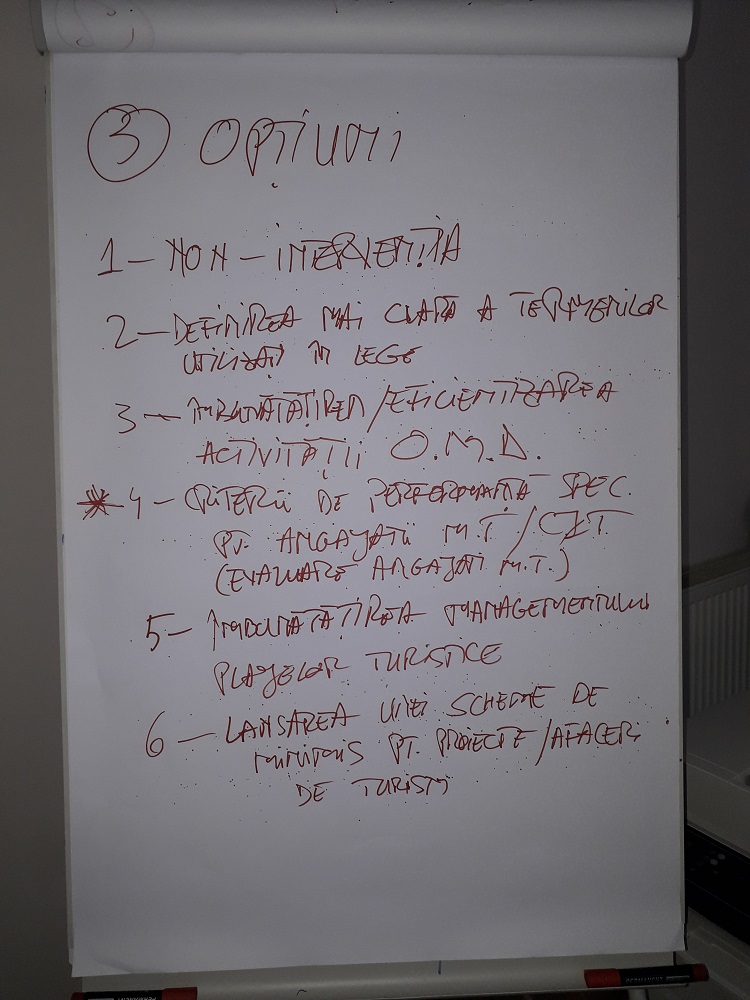 3 OPȚIUNI
1 - NON - INTERVENȚIA
2 - DEFINIREA MAI CLARĂ A TERMENILOR
UTILIZAȚI ÎN LEGE
3 - ÎMBUNĂTĂȚIREA/EFICIENTIZAREA
ACTIVITĂȚII O.M.D.
* 4 - CRITERII DE PERFORMANȚĂ SPEC.
PT. ANGAJAȚII M.T./
(EVALUARE ANGAJAȚI M.T.)
5 - ÎMBUNĂTĂȚIREA MANAGEMENTULUI
PLAJELOR TURISTICE
6 - LANSAREA UNEI SCHEME DE
MINIMIS PT. PROIECTE/AFACERI
DE TURISM